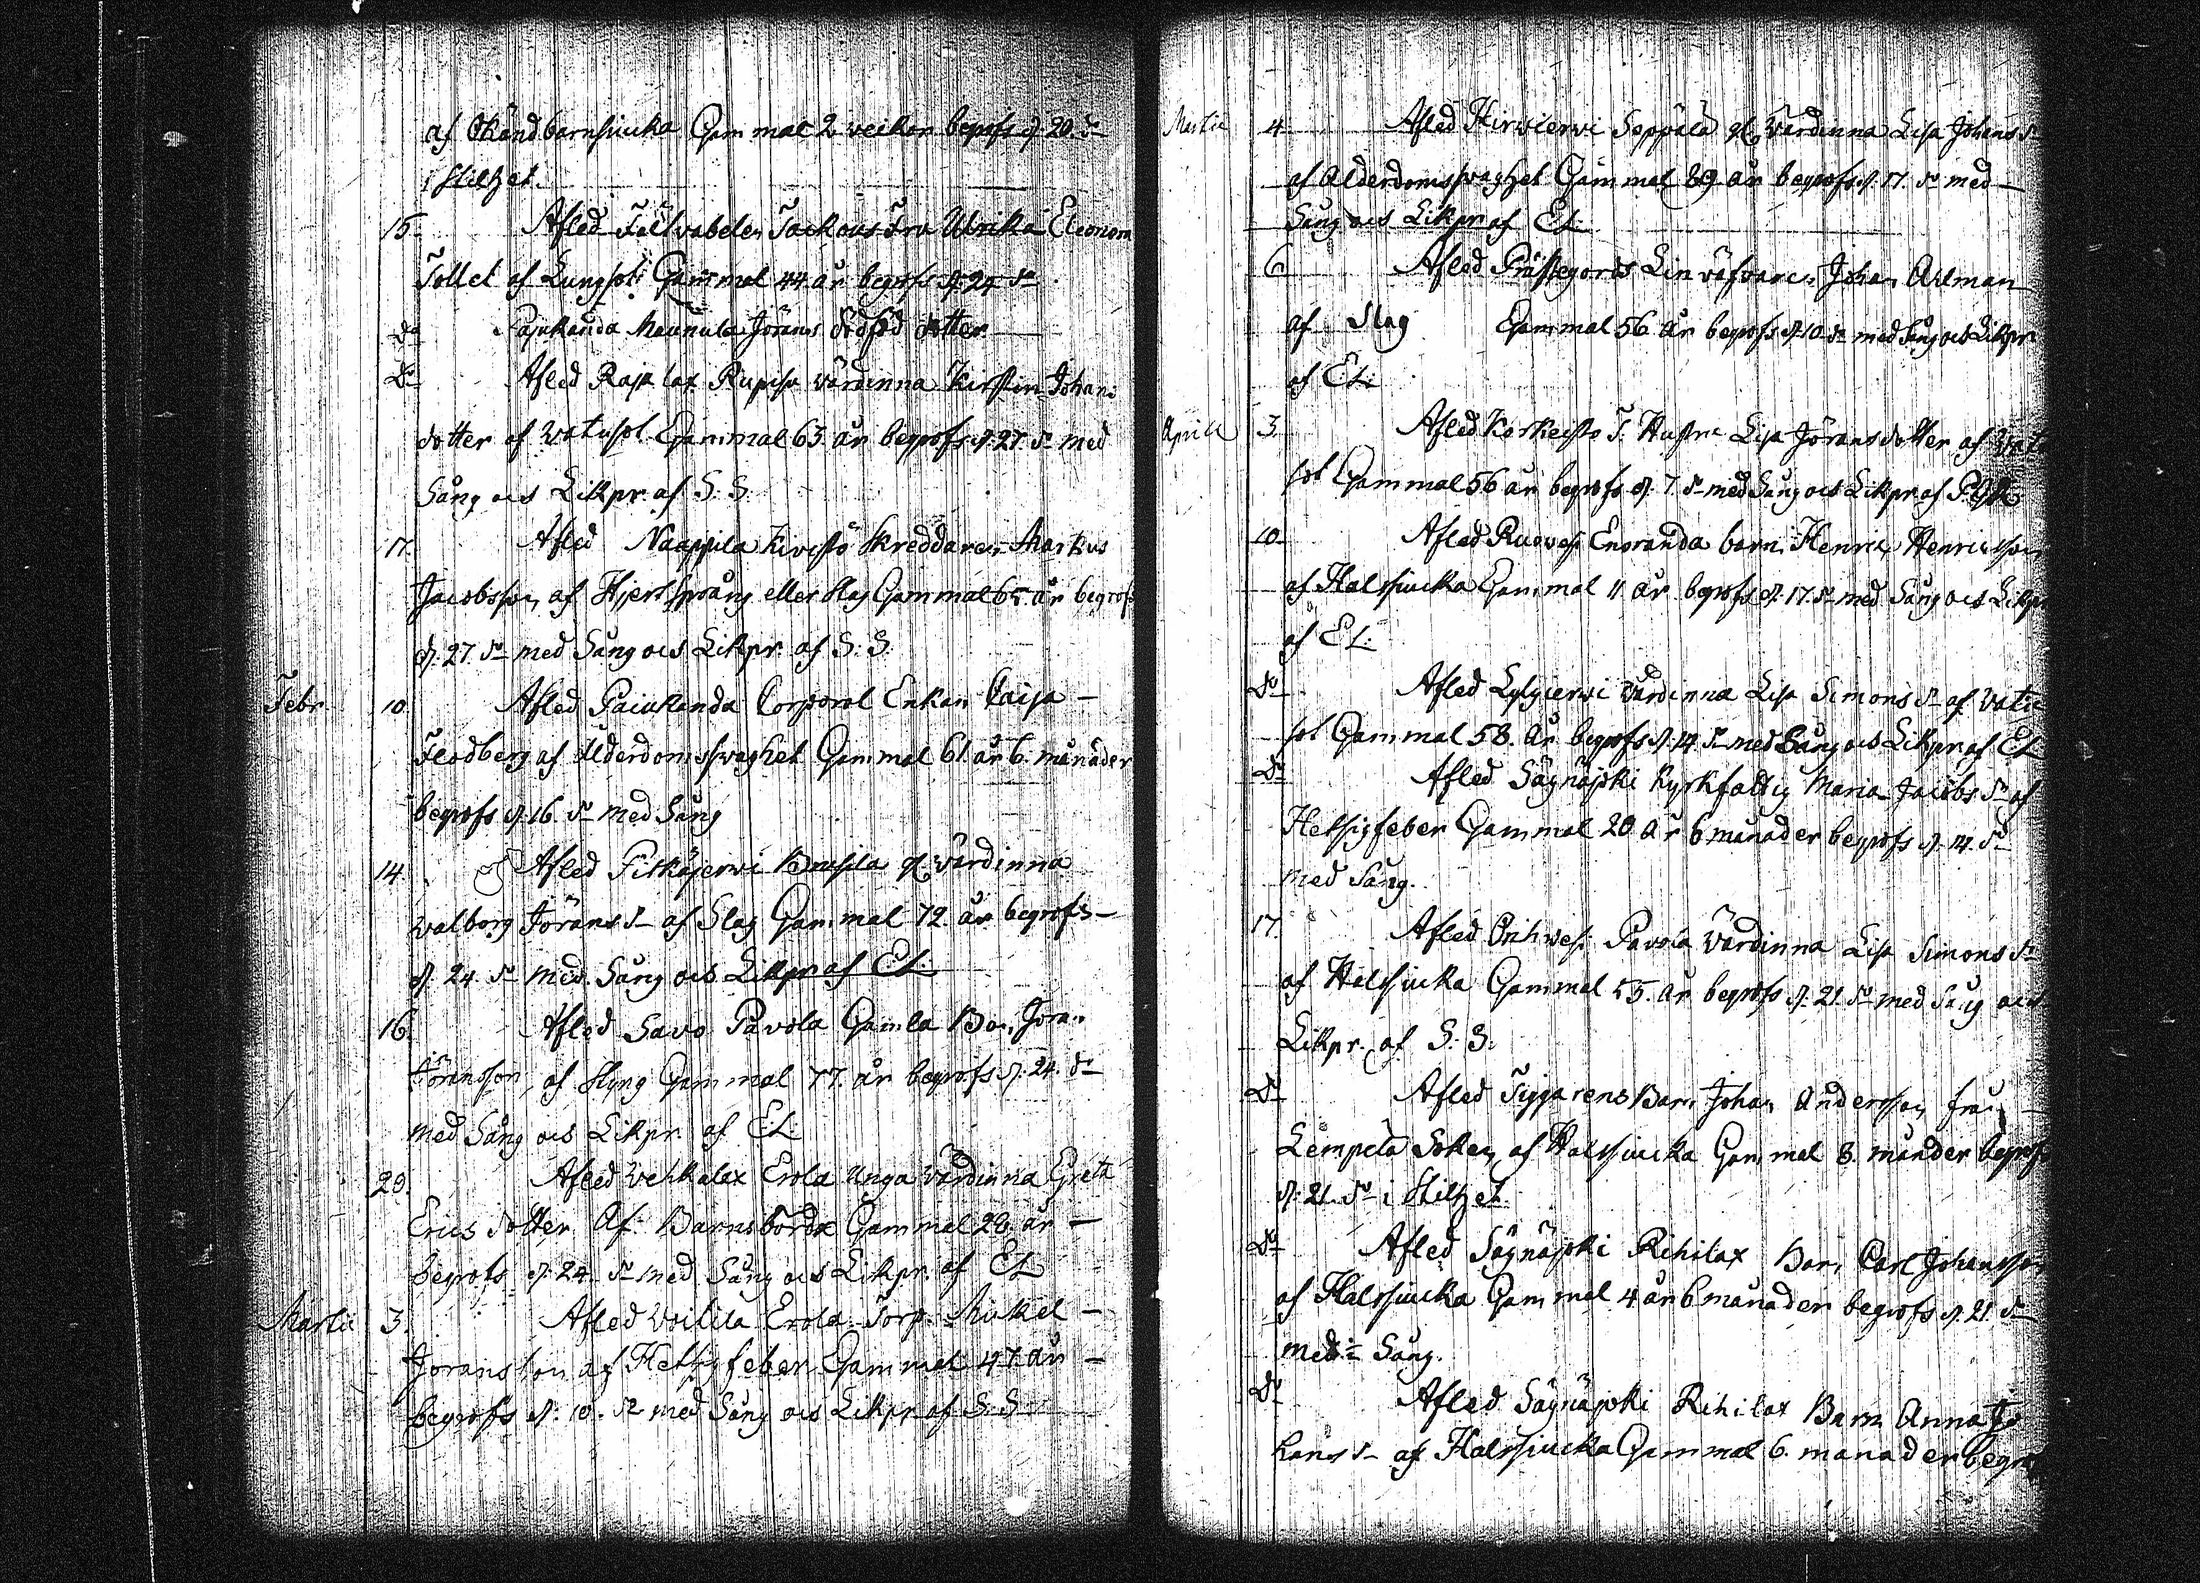 af Okänd barnsiucka Gammal 2 veckor begrofs d. 20. do
i stilhet.
15. Afled Fältväbelen Fru Ulrika Eleonora
Tollet af Lungsot Gammal 44 år begrofs d. 24 do
do Paiukanda Maunula Jörans dödfödd dotter
Do Afled Raja lax värdinna Kirstin Johans
dotter af Watusot Gammal 63 år begrofs d. 27. do med
Sång och Likpr. af S. S.
17. Afled Naappila Kivistö Skreddaren Markus
Jacobsson af Hjertsprång eller slag Gammal 65. år begrofs
d. 27. do med Sång och Likpr. af S. S.
Febr. 10. Afled Paiukanda Corporal Enkan Caisa
Flodberg af Ålderdomsswaghet Gammal 61. år 6. månader
begrofs d. 16. do med Sång
14. Afled Pitkäjerwi gl. värdinna
Walborg Jörans d. af Slag Gammal 72. år begrofs
d. 24. do med Sång och Likpr. af EL.
16. Afled Savo Pavola Gamla Bon. Jöran
Jöransson, af Styng Gammal 77. år begrofs d. 24. do
med Sång och Likpr. af E.L.
20. Afled Wehkalax Erola unga Värdinna Greta
Erics dotter Af Barnsbörd Gammal 28. år
begrofs d. 24. do med Sång och Likpr. af EL
Martii 3. Afled Erola Torp. Mickel
Jöransson af Hetsigfeber Gammal 47. år
begrofs d. 10. do med Sång och Likpr. af S. S.
Martii 4. Afled Hirwierwi Seppälä gl. Värdinna Lisa Johans d.
af Ålderdomsswaghet Gammal 89. år begrofs d. 17. do med
Sång och Likpr. af EL.
6. Afled Prästegords Linväfvaren Johan Ahlman
af Slag Gammal 56. år begrofs d. 10. do med Sång och Likpr
af EL.
Aprill 3. Afled Korkeisto T. Hustru Lisa Jöransdotter af Watu
sot Gammal 56 år begrofs d. 7. do med Sång och Likpr. af
10. Afled Ruowesi Enoranda barn Henric Henricsson
af Halssiucka Gammal 11 år begrofs d. 17. do med Sång och Likpr
af EL.
Do Afled Lylyierwi Värdinna Lisa Simons d. af Vatu
sot Gammal 58. år begrofs d. 14. do med Sång och Likpr. af EL
Do Afled Säynäjoki Kyrkfattig Maria Jacobs d. af
Hetsigfeber Gammal 20 år 6 månader begrofs d. 14. do
med Sång.
17. Afled Orihwesi Pavola Värdinna Lisa Simons d.
af Halssiucka Gammal 55. år begrofs d. 21. do med Sång och
Likpr. af S. S.
Do Afled Tiggarens Barn Johan Andersson från
Lempela Soken af Halssiucka Gammal 8. månder begrofs
d. 21. do i stilhet
Do Afled Säynäjoki Rihilax Barn Carl Johansson
af Halssiucka Gammal 4 år 6 månader begrofs d. 21. do
med Sång.
Do Afled Säynäjoki Rihilax Barn Anna Jo
hans d. af Halssiucka Gammal 6. månader begrofs